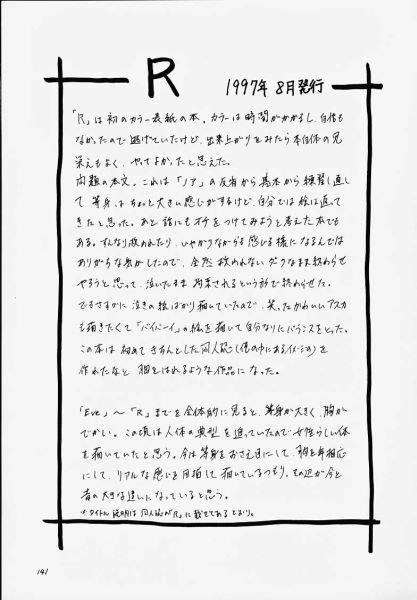 R 1997年 8月発行
「R」は初のカラー表紙の本。カラーは時間がかかるし、自信も
なかったので逃げていたけど、出来上がりをみたら本自体の見
栄えもよく、やってよかったと思えた。
問題の本文。これは「ノア」の反省から基本から練習し直し
て 等身はちょっと大きい感じがするけど、自分では絵は直って
きたと思った。あと話にもオチをつけてみようと考えた本でも
ある。すんなり救われたり、いやがりながらも感じる様になるんでは
ありがちな気がしたので、全然救われないダークなまま終わらせ
やろうと思って、泣いたまま 拘束されるという形で終わらせた。
でもさすがに泣きの絵ばかり描いていたので、笑ったかわいいアスカ
も描きたくて「バイバーイ」の絵を描いて自分なりにバランスをとった。
この本は初めて きちんとした同人誌(僕の中にあるイメージの)を
作れたなと 胸をはれるような作品になった。
「Eve」〜「R」までを全体的に見ると、等身が大きく、胸が
でかい。この頃は人体の典型を追っていたので女性らしい体
を描いていたと思う。今は等身をおさえ目にして、胸を年相応
にして、リアルな感じを目指して描いているつもり。その辺が今と
昔の大きな違いになっていると思う。
*タイトル説明は同人誌の「R」に載せてあるとおり。
141